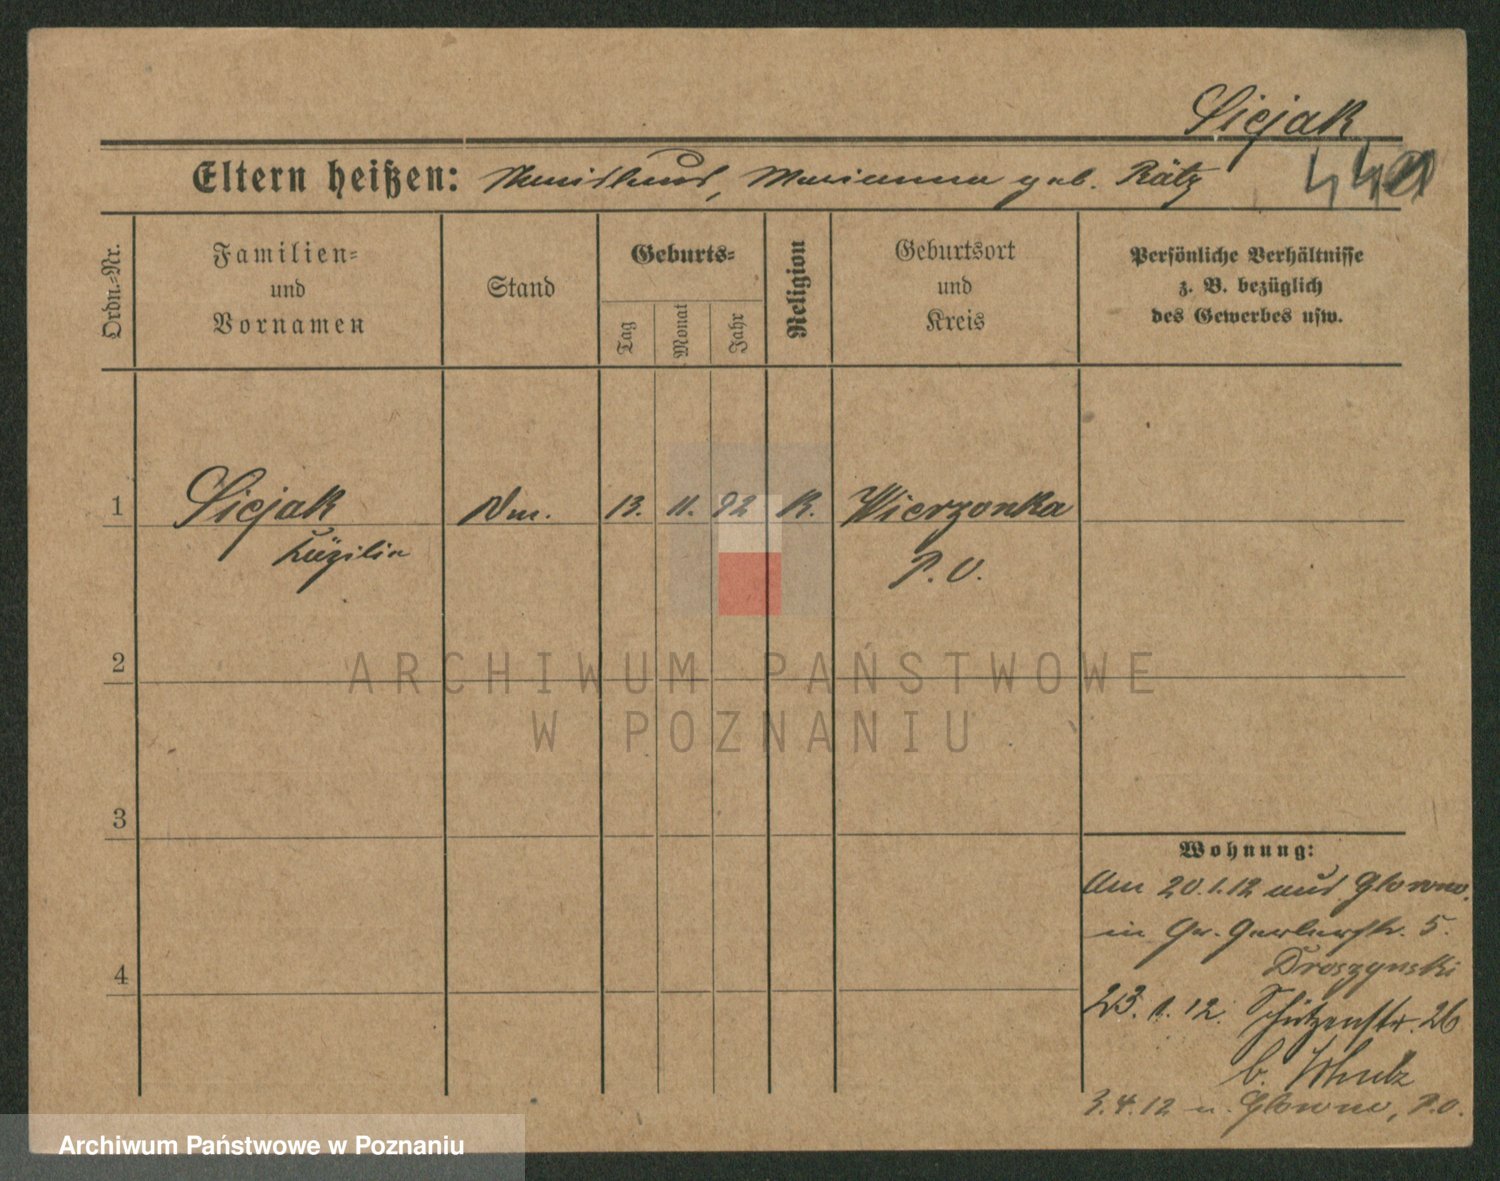 Siejak
Eltern heißen: Marianna geb. Rätz
Ordn.-Nr.
Familien-
und
Vornamen
Stand
Geburts-
Tag
Monat
Jahr
Religion
Geburtsort
und
Kreis
Persönliche Verhältnisse
z. B. bezüglich
des Gewerbes usw.
1 Siejak Dm. 13. 11. 92 K. Wierzonka
Cäzilie P. O.
2
ARCHIWUM PAŃSTWOWE
W POZNANIU
3
Wohnung:
Am 20.1.12 aus Glowno,
in Gr. Gerberstr. 5.
Droszynski
4
23. 1. 12. Schützenstr. 26
b.
3.4.12 n. Glowno, P.O.
Archiwum Państwowe w Poznaniu